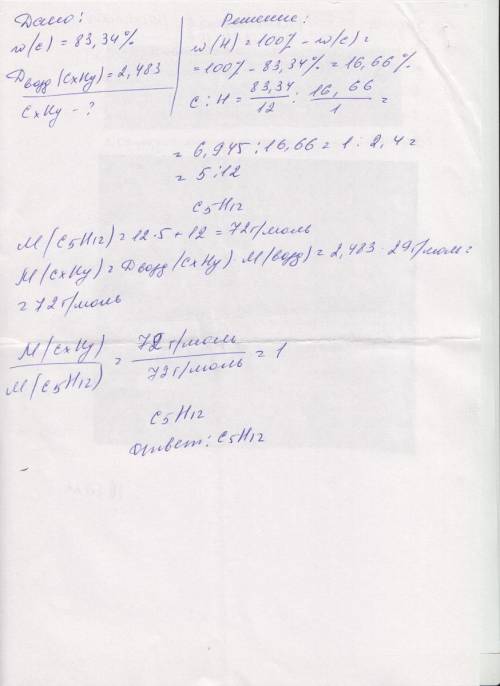 Дано:
w(C) = 83,34%
Dвозд (CxHy) = 2,483
CxHy - ?
Решение:
w(H) = 100% - w(C) =
= 100% - 83,34% = 16,66%
C : H = 83,34/12 : 16,66/1 =
= 6,945 : 16,66 = 1 : 2,4 =
= 5 : 12
C5H12
M(C5H12) = 12·5 + 12 = 72 г/моль
M(CxHy) = Dвозд (CxHy) · M(возд) = 2,483 · 29 г/моль =
= 72 г/моль
M(CxHy)/M(C5H12) = 72 г/моль/72 г/моль = 1
C5H12
Ответ: C5H12